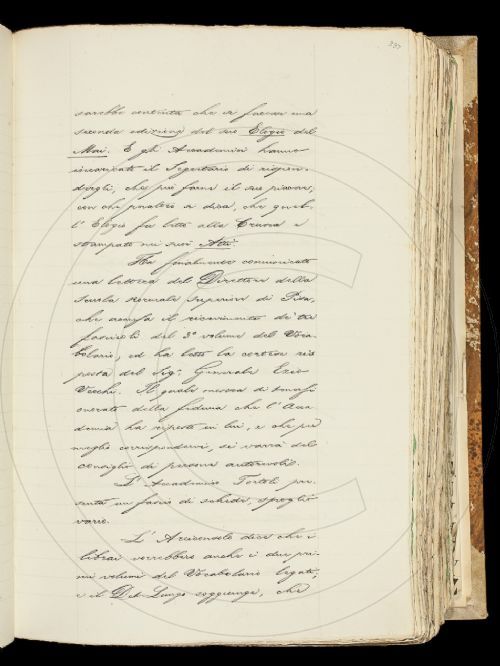 337
sarebbe contenta che si facesse una
seconda edizione del suo Elogio del
Mai. E gli Accademici hanno
incaricato il Segretario di rispon-
dergli, che può farne il suo piacere,
con che ponderi e dica, che quel-
l'Elogio fu letto alla Crusca e
stampato nei suoi Atti.
Ha finalmente comunicato
una lettera del Direttore della
Scuola Normale Superiore di Pisa,
che accusa il ricevimento de' tre
fascicoli del 3º volume del Voca-
bolario, ed ha letto la cortese ris
posta del Sigr. Generale Ezio
Vecchi. Il quale mostra di tenersi
onorato della fiducia che l'Acca
demia ha riposta in lui, e che per
meglio corrispondervi, si varrà del
consiglio di persone autorevoli.
L'Accademico Tortoli pre
senta un fascio di schede, spogli
varie.
L'Arciconsolo dice che i
librai vorrebbero anche i due pri-
mi volumi del Vocabolario legati;
e il Del Lungo soggiunge, che